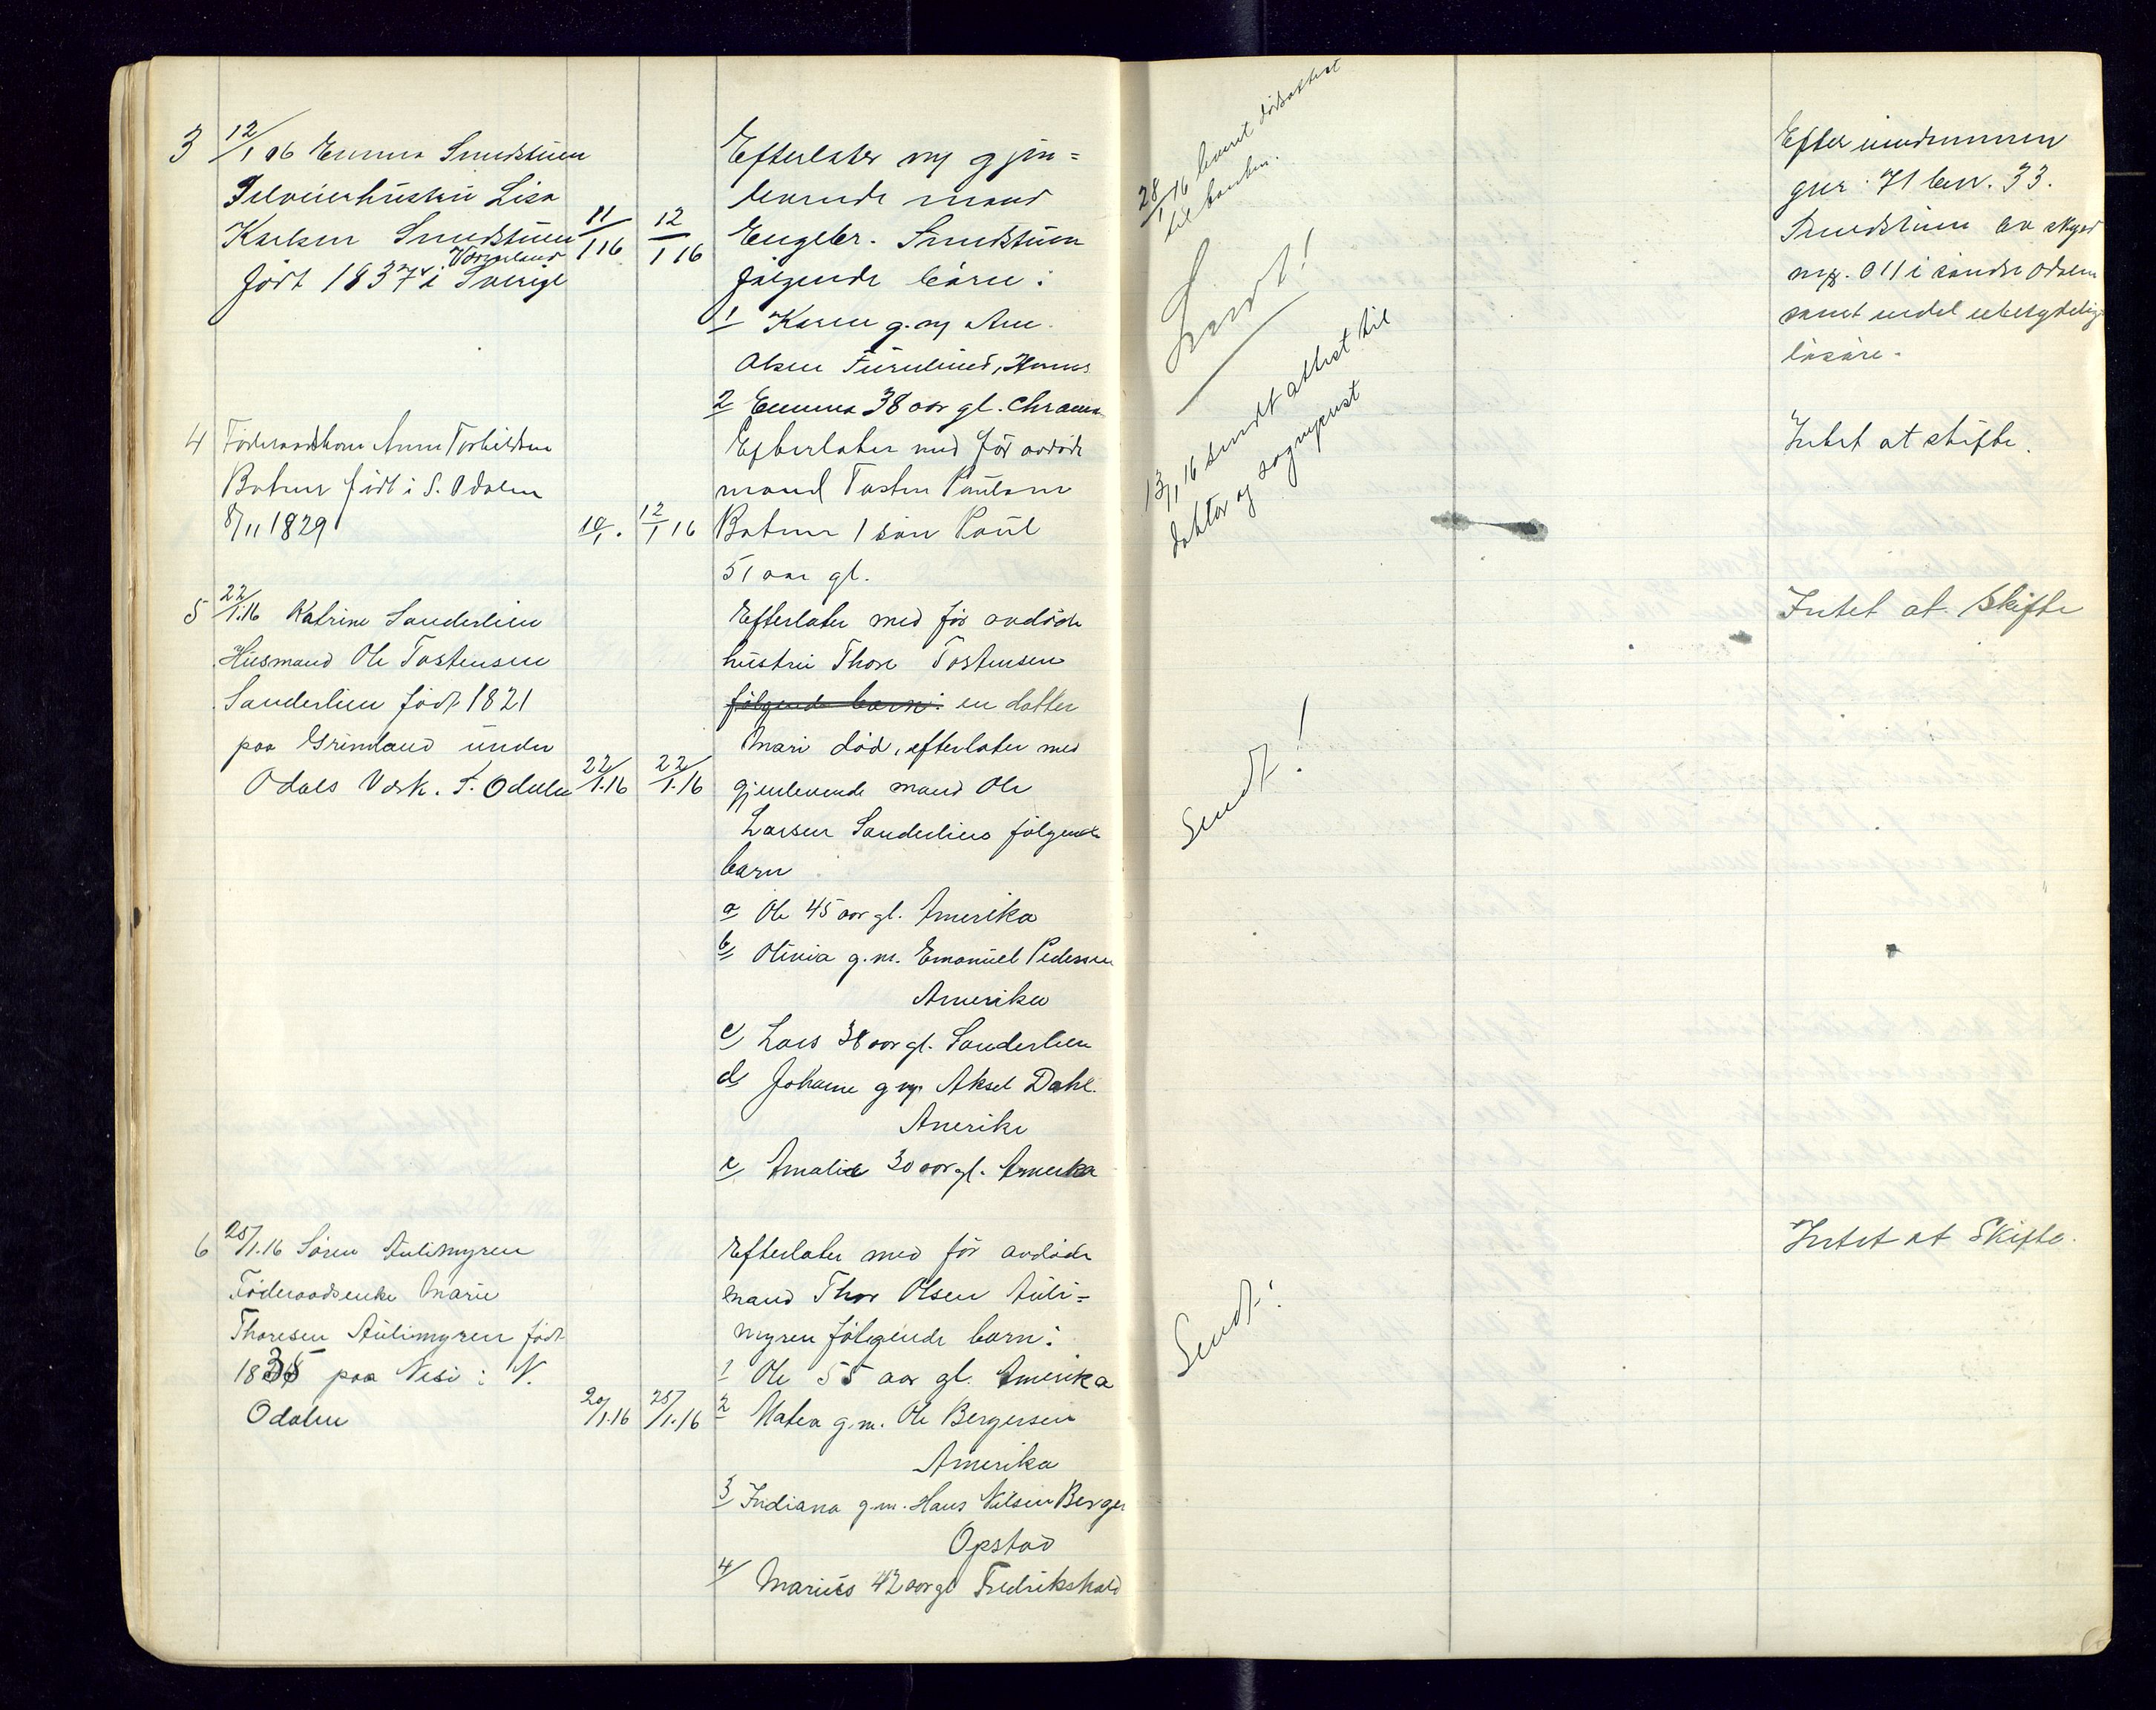 3 12/1 16 Emma Smedstuen
Selveierhustru Lisa
Karlsen Smedstuen 11/1 16 12/1 16
Værmland
født 1837 i Sverige
Efterlater m gjen=
levende mand
Engebr. Smedstuen
følgende børn:
1 Karen g. m
Olsen Furulund,
2 Emma 38 aar gl.
28/1 16 leveret dødsattest
til banken.
Sendt!
Efter
gnr. 71 brn. 33.
Smedstuen av skyld
mrk. 011 i søndre Odalen
samt endel ubetydelig
løsøre.
4 Føderaadskone Anne Torkildsen
Botner født i S. Odalen
8/11 1829 10/1. 12/1 16
Efterlater med før avdøde
mand Tosten Paulsen
Botner 1 søn Paul
51 aar gl.
13/1 16 sendt attest til
doktor og sogneprest
Intet at skifte.
5 22/1.16 Katrine Sanderlien
Husmand Ole Tostensen
Sanderlien født 1821
paa Grinland under
Odals Verk. S. Odalen 22/1.16 22/1.16
Efterlater med før avdøde
hustru Thore Tostensen
følgende barn: en datter
Mari død, efterlater med
gjenlevende mand Ole
Larsen Sanderlien følgende
barn
a Ole 45 aar gl. Amerika
b Olivia g. m. Emanuel Pedersen
Amerika
c Lars 38 aar gl. Sanderlien
d Johanne g m. Aksel Dahl.
Amerika
e Amalie 30 aar gl. Amerika
Sendt!
Intet at Skifte
6 25/1.16 Søren Aulimyren
Føderaadsenke Marie
Thoresen Aulimyren født
1835 paa Nesi i N.
Odalen 20/1.16 25/1.16
Efterlater med før avdøde
mand Thor Olsen Auli=
myren følgende barn:
1 Ole 55 aar gl. Amerika
2 Matea g. m. Ole Bergersen
Amerika
3 Indiana g. m. Hans Nilsen Berger
Opstad
4/ Marius 42 aar gl Fredrikshald
Sendt!
Intet at Skifte.